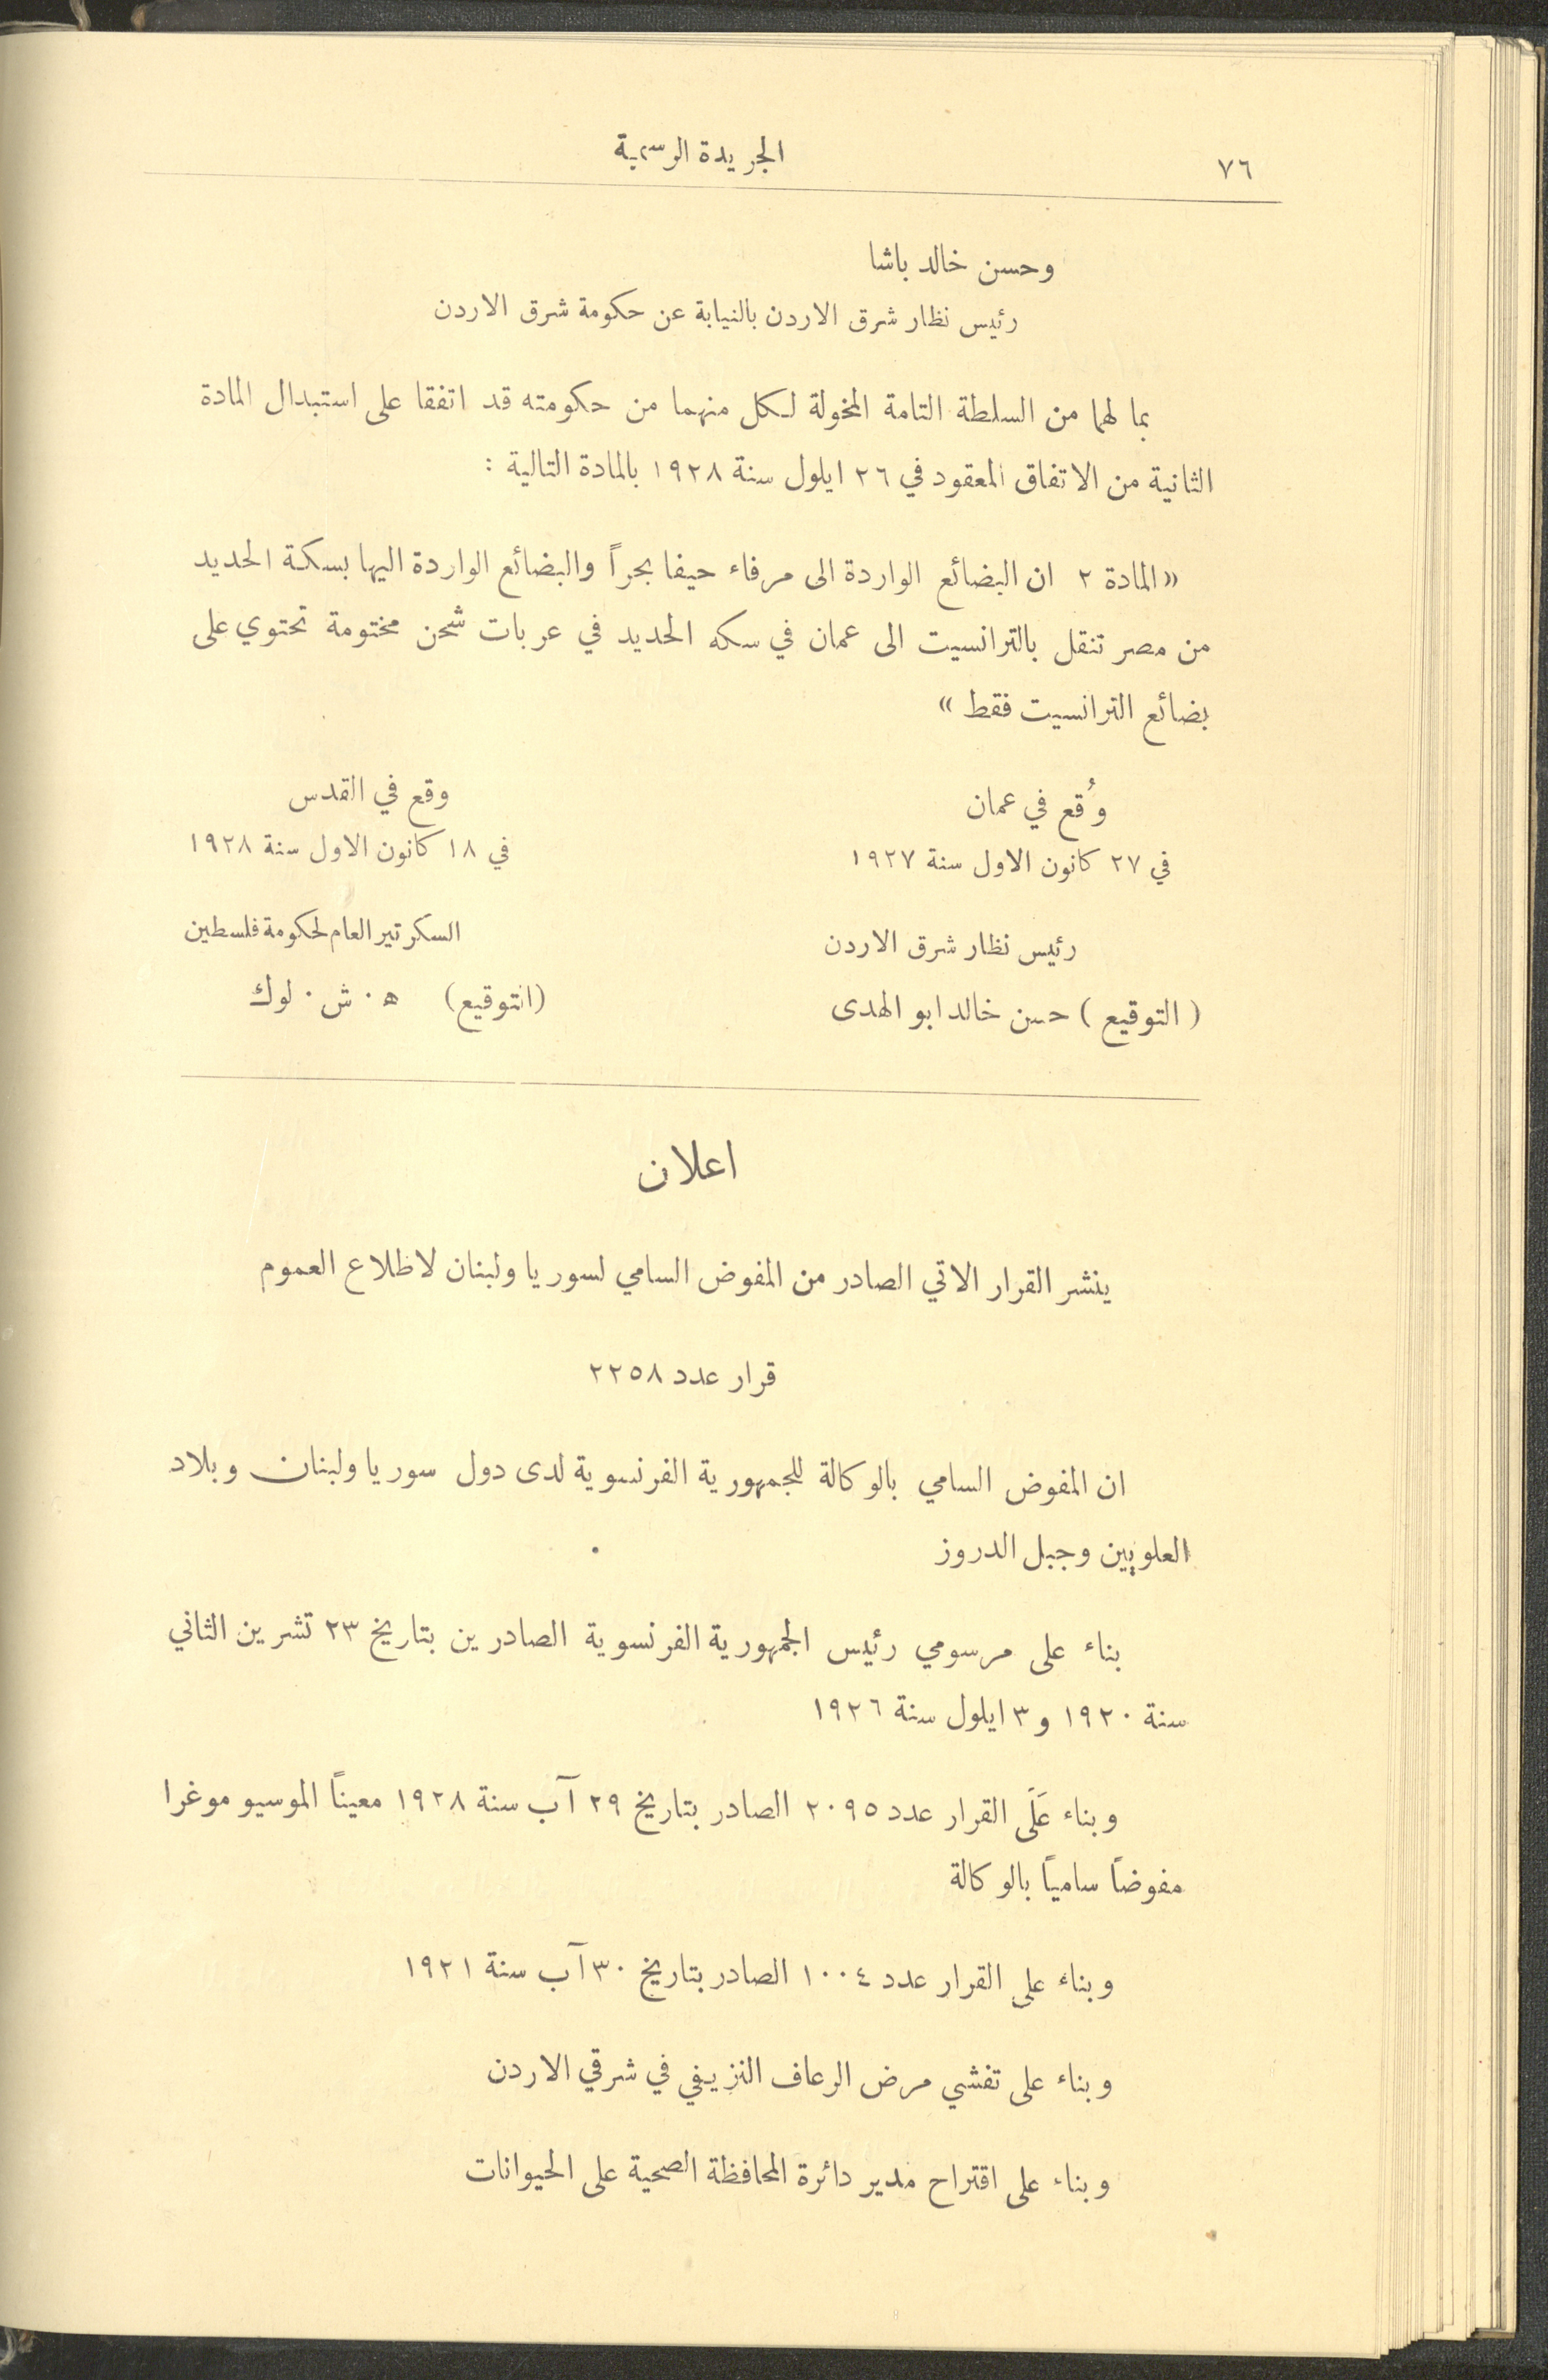 ٧٦
الجريدة الرسمية
وحسن خالد باشا
رئيس نظار شرق الاردن بالنيابة عن حكومة شرق الاردن
بما لهما من السلطة التامة المخولة لكل منهما من حكومته قد اتفقا على استبدال المادة
الثانية من الاتفاق المعقود في ٢٦ ايلول سنة ١٩٢٨ بالمادة التالية :
« المادة ٢ ان البضائع الواردة الى مرفاء حيفا بحراً والبضائع الواردة اليها بسكة الحديد
من مصر تنقل بالترانسيت الى عمان في سكه الحديد في عربات شحن مختومة تحتوي على
بضائع الترانسيت فقط »
وُقع في عمان
في ٢٧ كانون الاول سنة ١٩٢٧
رئيس نظار شرق الاردن
( التوقيع ) حسن خالد ابو الهدى
وقع في القدس
في ١٨ كانون الاول سنة ١٩٢٨
السكرتير العام لحكومة فلسطين
(التوقيع) ه . ش . لوك
اعلان
ينشر القرار الاتي الصادر من المفوض السامي لسوريا ولبنان لاظلاع العموم
قرار عدد ٢٢٥٨
ان المفوض السامي بالوكالة للجمهورية الفرنسوية لدى دول سوريا ولبنان وبلاد
العلويين وجبل الدروز
بناء على مرسومي رئيس الجمهورية الفرنسوية الصادرين بتاريخ ٢٣ تشرين الثاني
سنة ١٩٢٠ و ٣ ايلول سنة ١٩٢٦
وبناء عَلَى القرار عدد ٢٠٩٥ الصادر بتاريخ ٢٩ آب سنة ١٩٢٨ معيناً الموسيو موغرا
مفوضاً سامياً بالوكالة
وبناء على القرار عدد ١٠٠٤ الصادر بتاريخ ٣٠ آب سنة ١٩٢١
وبناء على تفشي مرض الرعاف النزيفي في شرقي الاردن
وبناء على اقتراح مدير دائرة المحافظة الصحية على الحيوانات